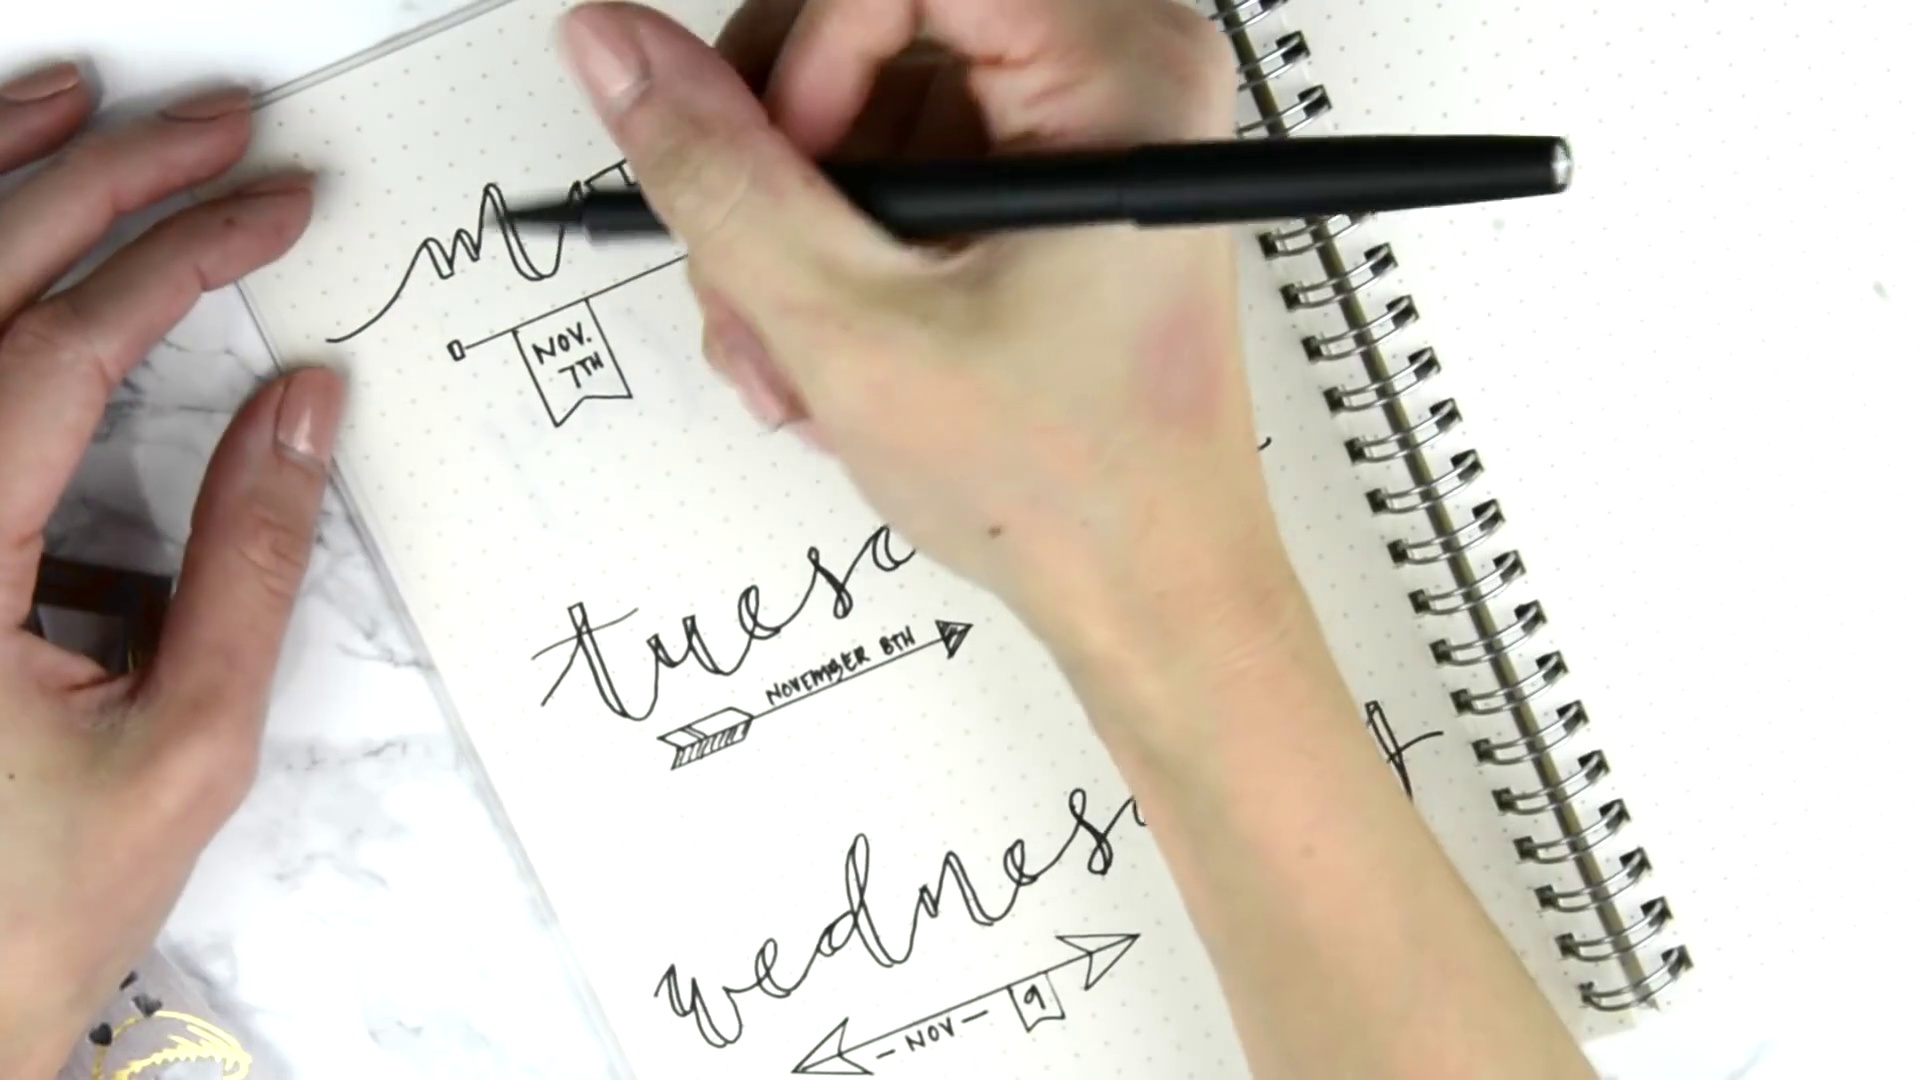 m
NOV.
7TH
tues
NOVEMBER 8TH
wednes
- NOV - 9